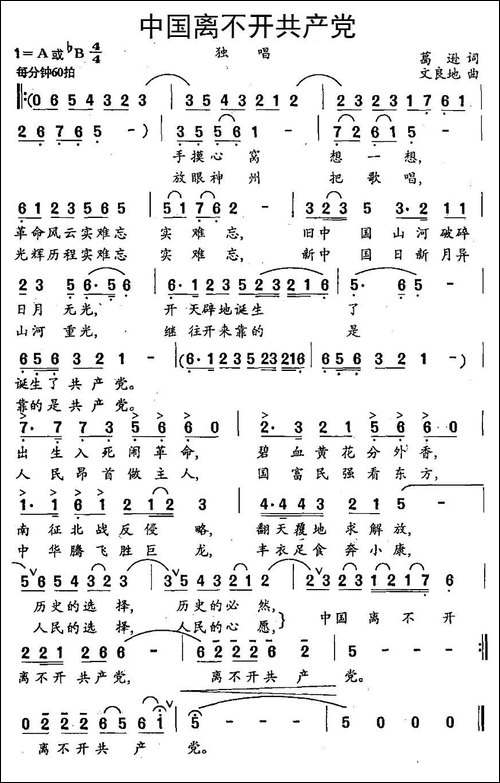 中国离不开共产党
1=A或♭B 4/4
独唱
葛逊 词
每分钟60拍
文良地 曲
‖:(0 6 5 4 3 2 3 | 3 5 4 3 2 1 2 | 2 3 2 3 1 7 6 1
2 6 7 6 5 -) | 3 5 5 6 1 - | 7 2 6 1 5 -
手摸心窝 想一想,
放眼神州 把歌唱,
6 1 2 3 5 6 5 | 5 1 7 6 2 - | 3 2 3 5 3·2 1 1
革命风云实难忘 实难忘, 旧中国山河破碎
光辉历程实难忘 实难忘, 新中国日新月异
2 3 5 6·5 6 | 6·1 2 3 5 2 3 2 1 6 | 5· 6 5 -
日月无光, 开天辟地诞生了
山河重光, 继往开来靠的是
6 5 6 3 2 1 - | (6·1 2 3 5 2 3 216 | 5 6 5 6 1 -)
诞生了共产党。
靠的是共产党。
7· 7 7 3 5 6 6 0 | 2· 3 2 1 5 6 6 0
出生入死闹革命, 碧血黄花分外香,
人民昂首做主人, 国富民强看东方,
1· 1 6 1 2 1 2 3 | 4·4 4 3 2 1 5 -
南征北战反侵略, 翻天覆地求解放,
中华腾飞胜巨龙, 丰衣足食奔小康,
5 6 5 4 3 2 3 | 3 5 4 3 2 1 2 | 2 3 2 3 1 2 1 7 6
历史的选择, 历史的必然,
人民的选择, 人民的心愿,} 中国离不开
2 2 1 2 6 6 - | 6 2 2 2 - 2 | 5 - - - :‖
离不开共产党, 离不开共产党。
0 2 2 2 6 5 6 1 | 5 - - - | 5 0 0 0 ‖
离不开共产党。